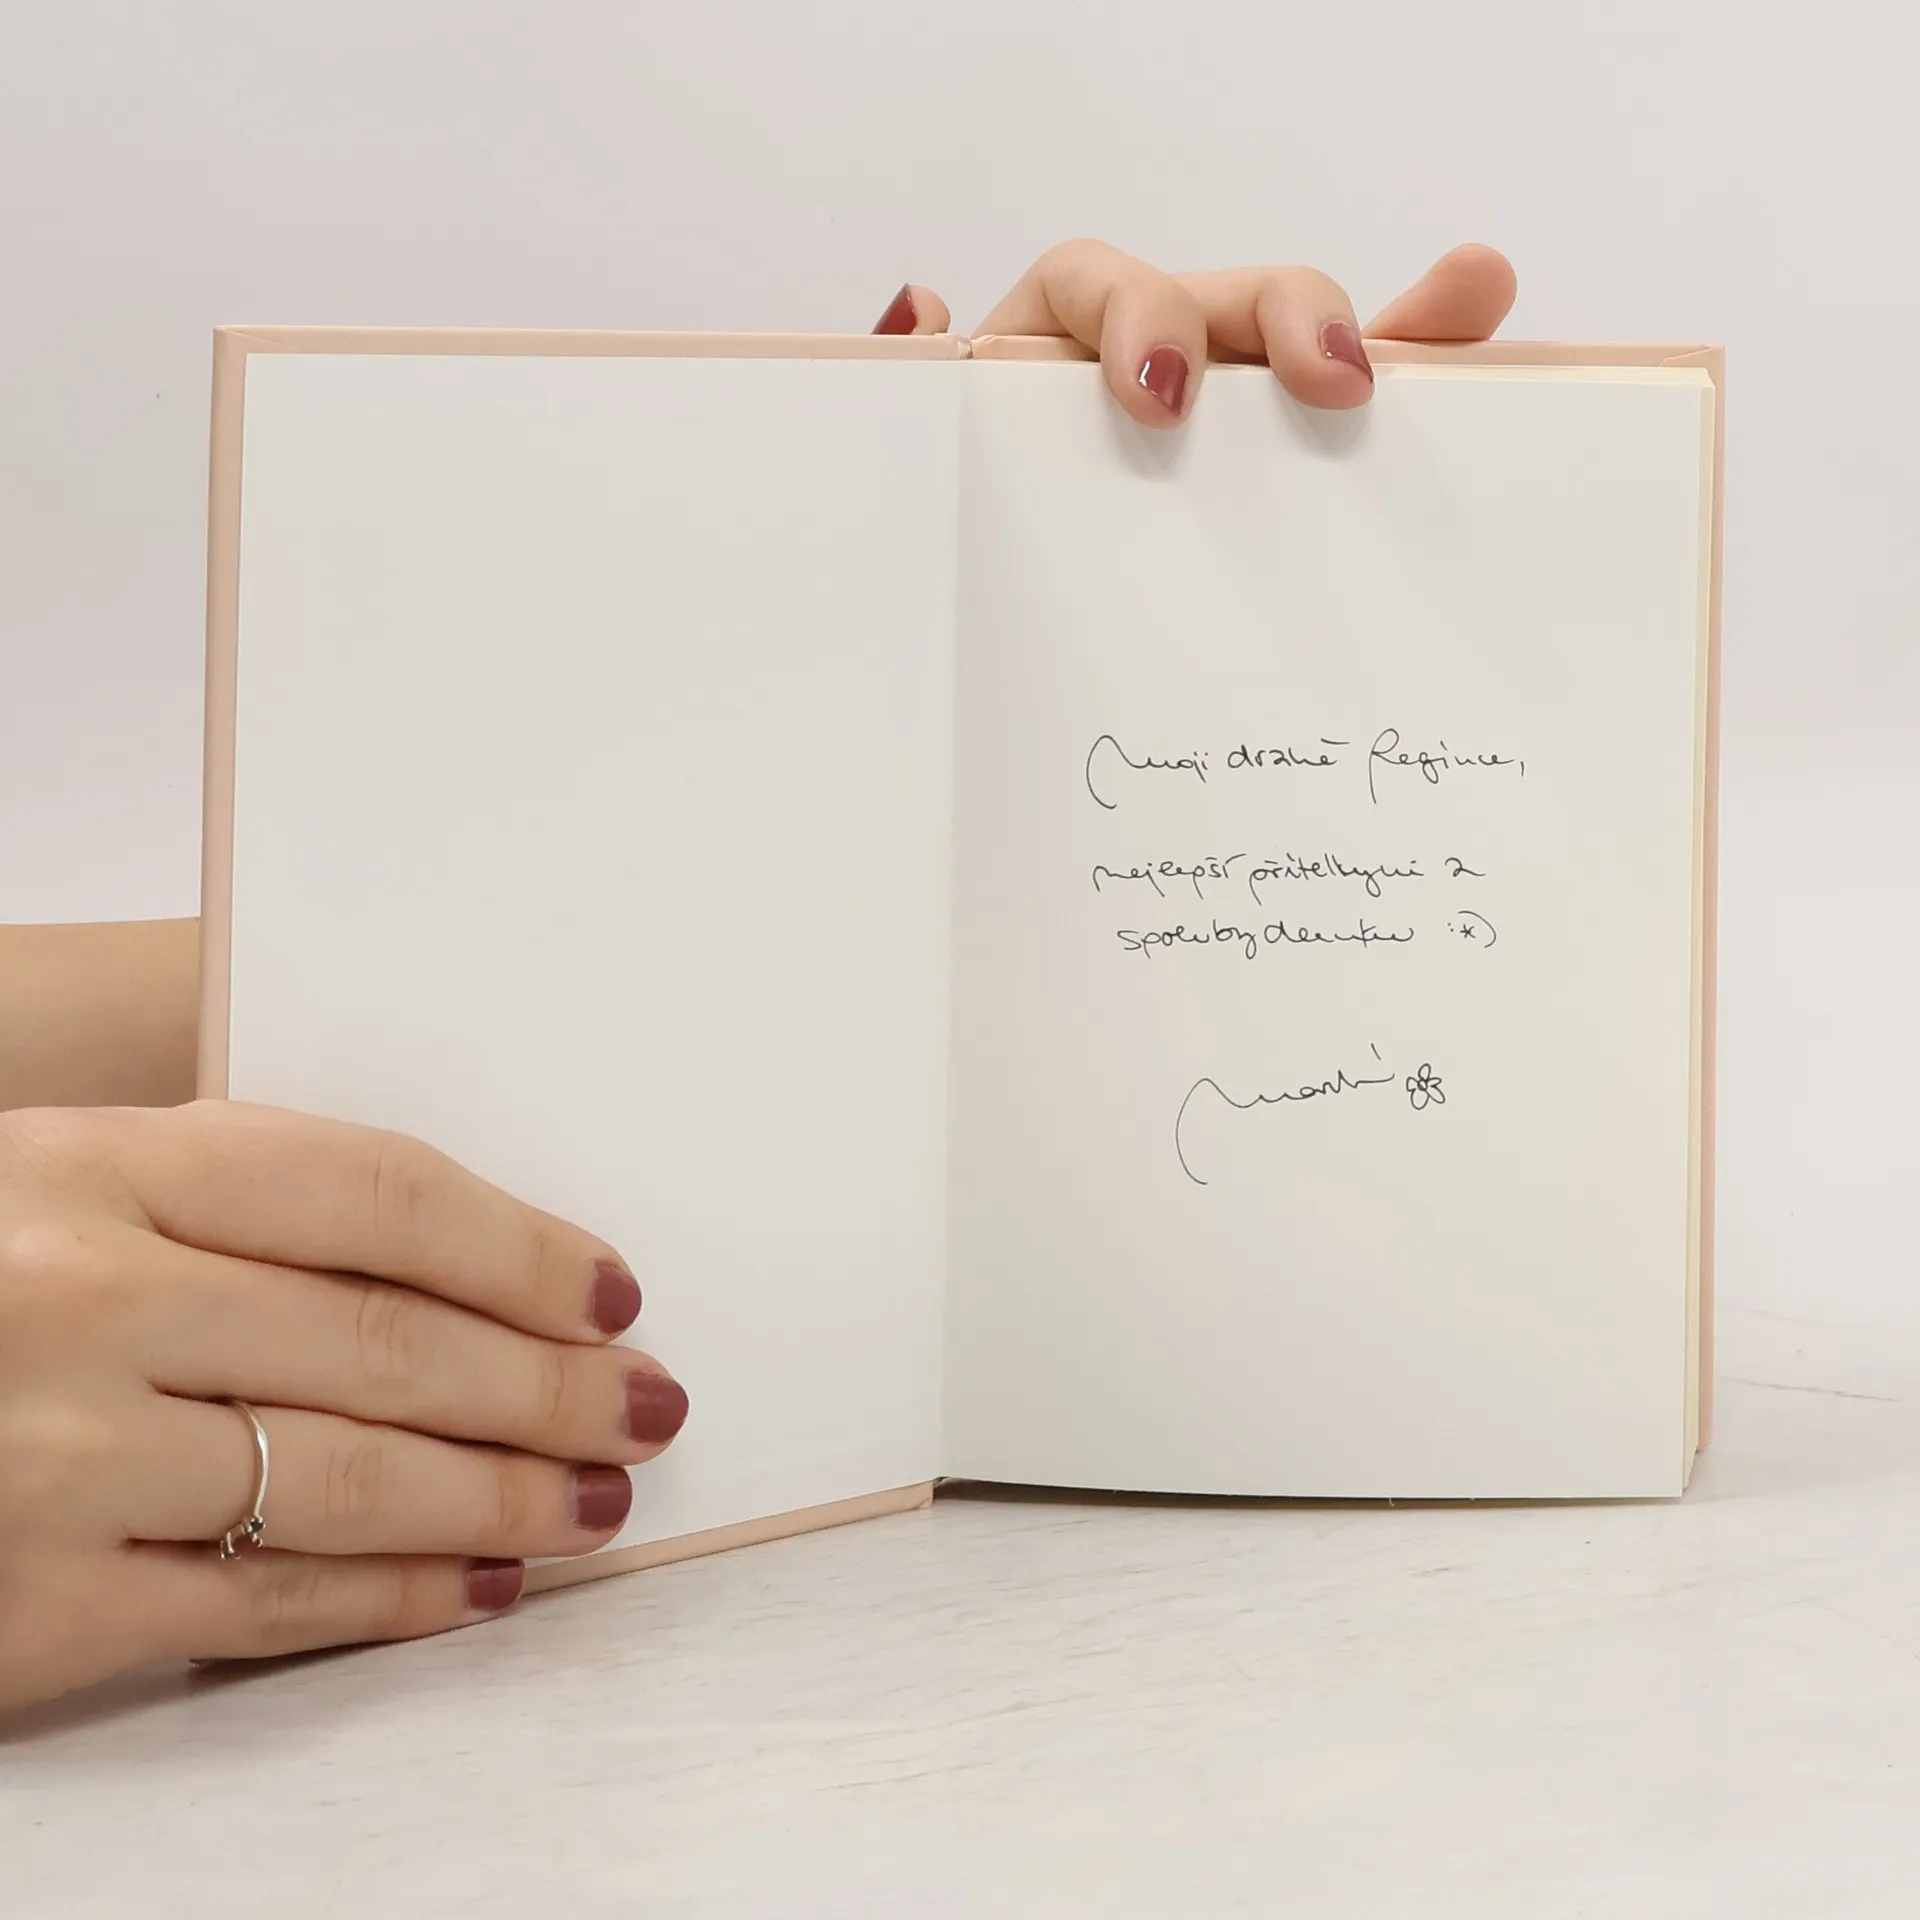 Mojí drahé Regince,
nejlepší přítelkyni a
spolubydlenku :*)